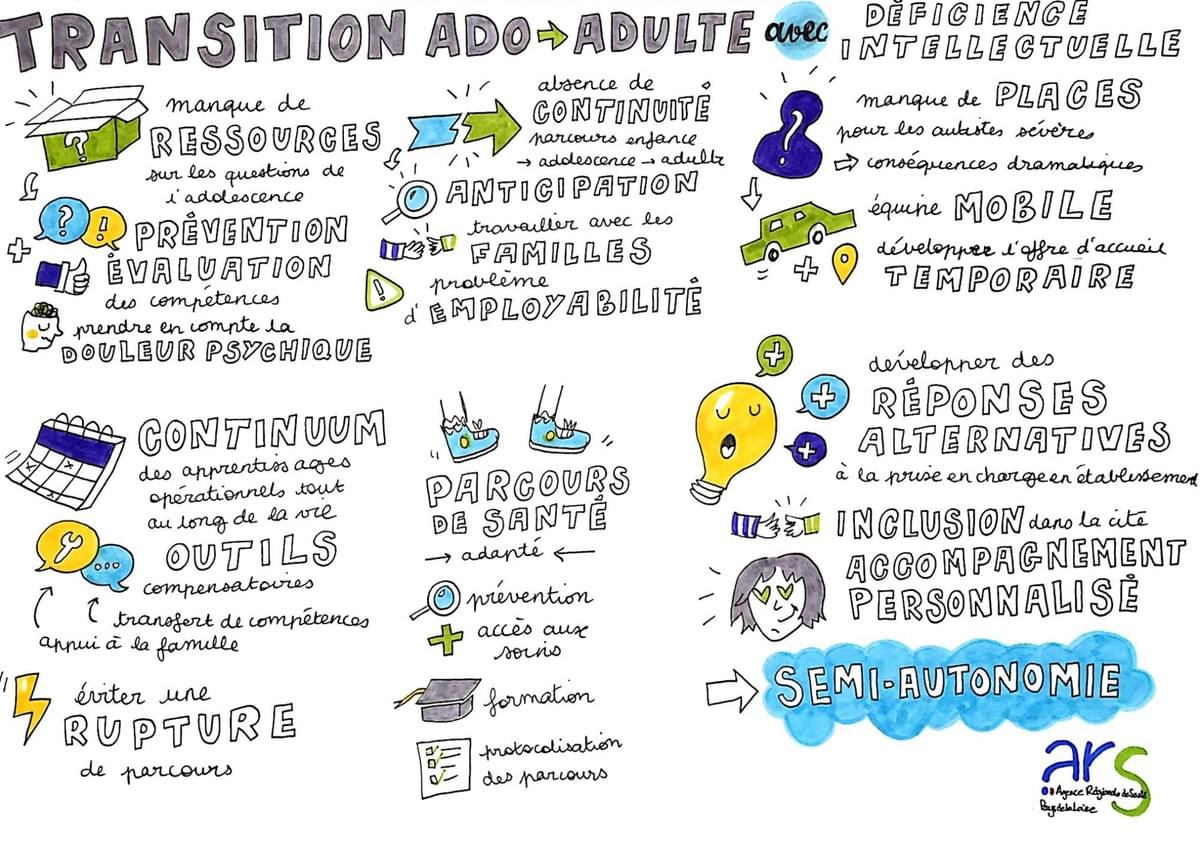 TRANSITION ADO → ADULTE avec DÉFICIENCE
INTELLECTUELLE
manque de
RESSOURCES
sur les questions de
l'adolescence
?
? !
+ PRÉVENTION
ÉVALUATION
des compétences
prendre en compte la
DOULEUR PSYCHIQUE
absence de
CONTINUITÉ
parcours enfance
→ adolescence → adulte
ANTICIPATION
travailler avec les
FAMILLES
!
problème
d'EMPLOYABILITÉ
?
manque de PLACES
pour les autistes sévères
⇨ conséquences dramatiques
équipe MOBILE
+ développer l'offre d'accueil
TEMPORAIRE
CONTINUUM
des apprentissages
opérationnels tout
au long de la vie
OUTILS
compensatoires
transfert de compétences
appui à la famille
éviter une
RUPTURE
de parcours
PARCOURS
DE SANTÉ
→ adapté ←
prévention
+ accès aux
soins
formation
protocolisation
des parcours
développer des
RÉPONSES
ALTERNATIVES
à la prise en charge en établissement
INCLUSION dans la cité
ACCOMPAGNEMENT
PERSONNALISÉ
⇨ SEMI-AUTONOMIE
ars
Agence Régionale de Santé
Pays de la Loire